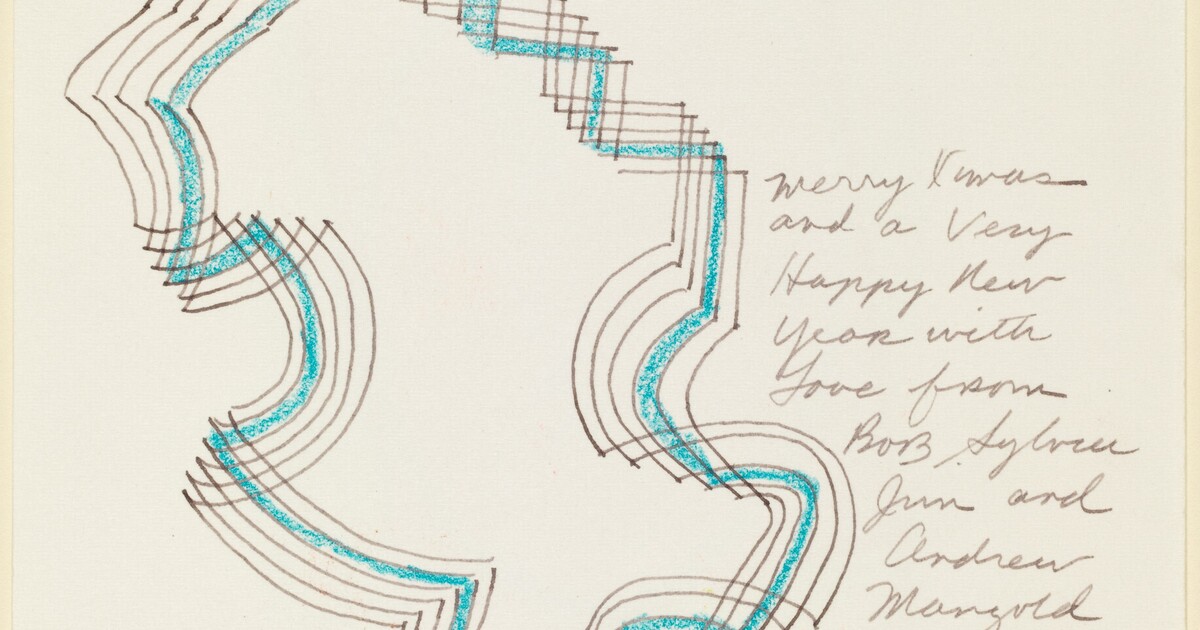 Merry Xmas
and a Very
Happy New
Year with
Love from
Bob Sylvia
Jim and
Andrew
Mangold